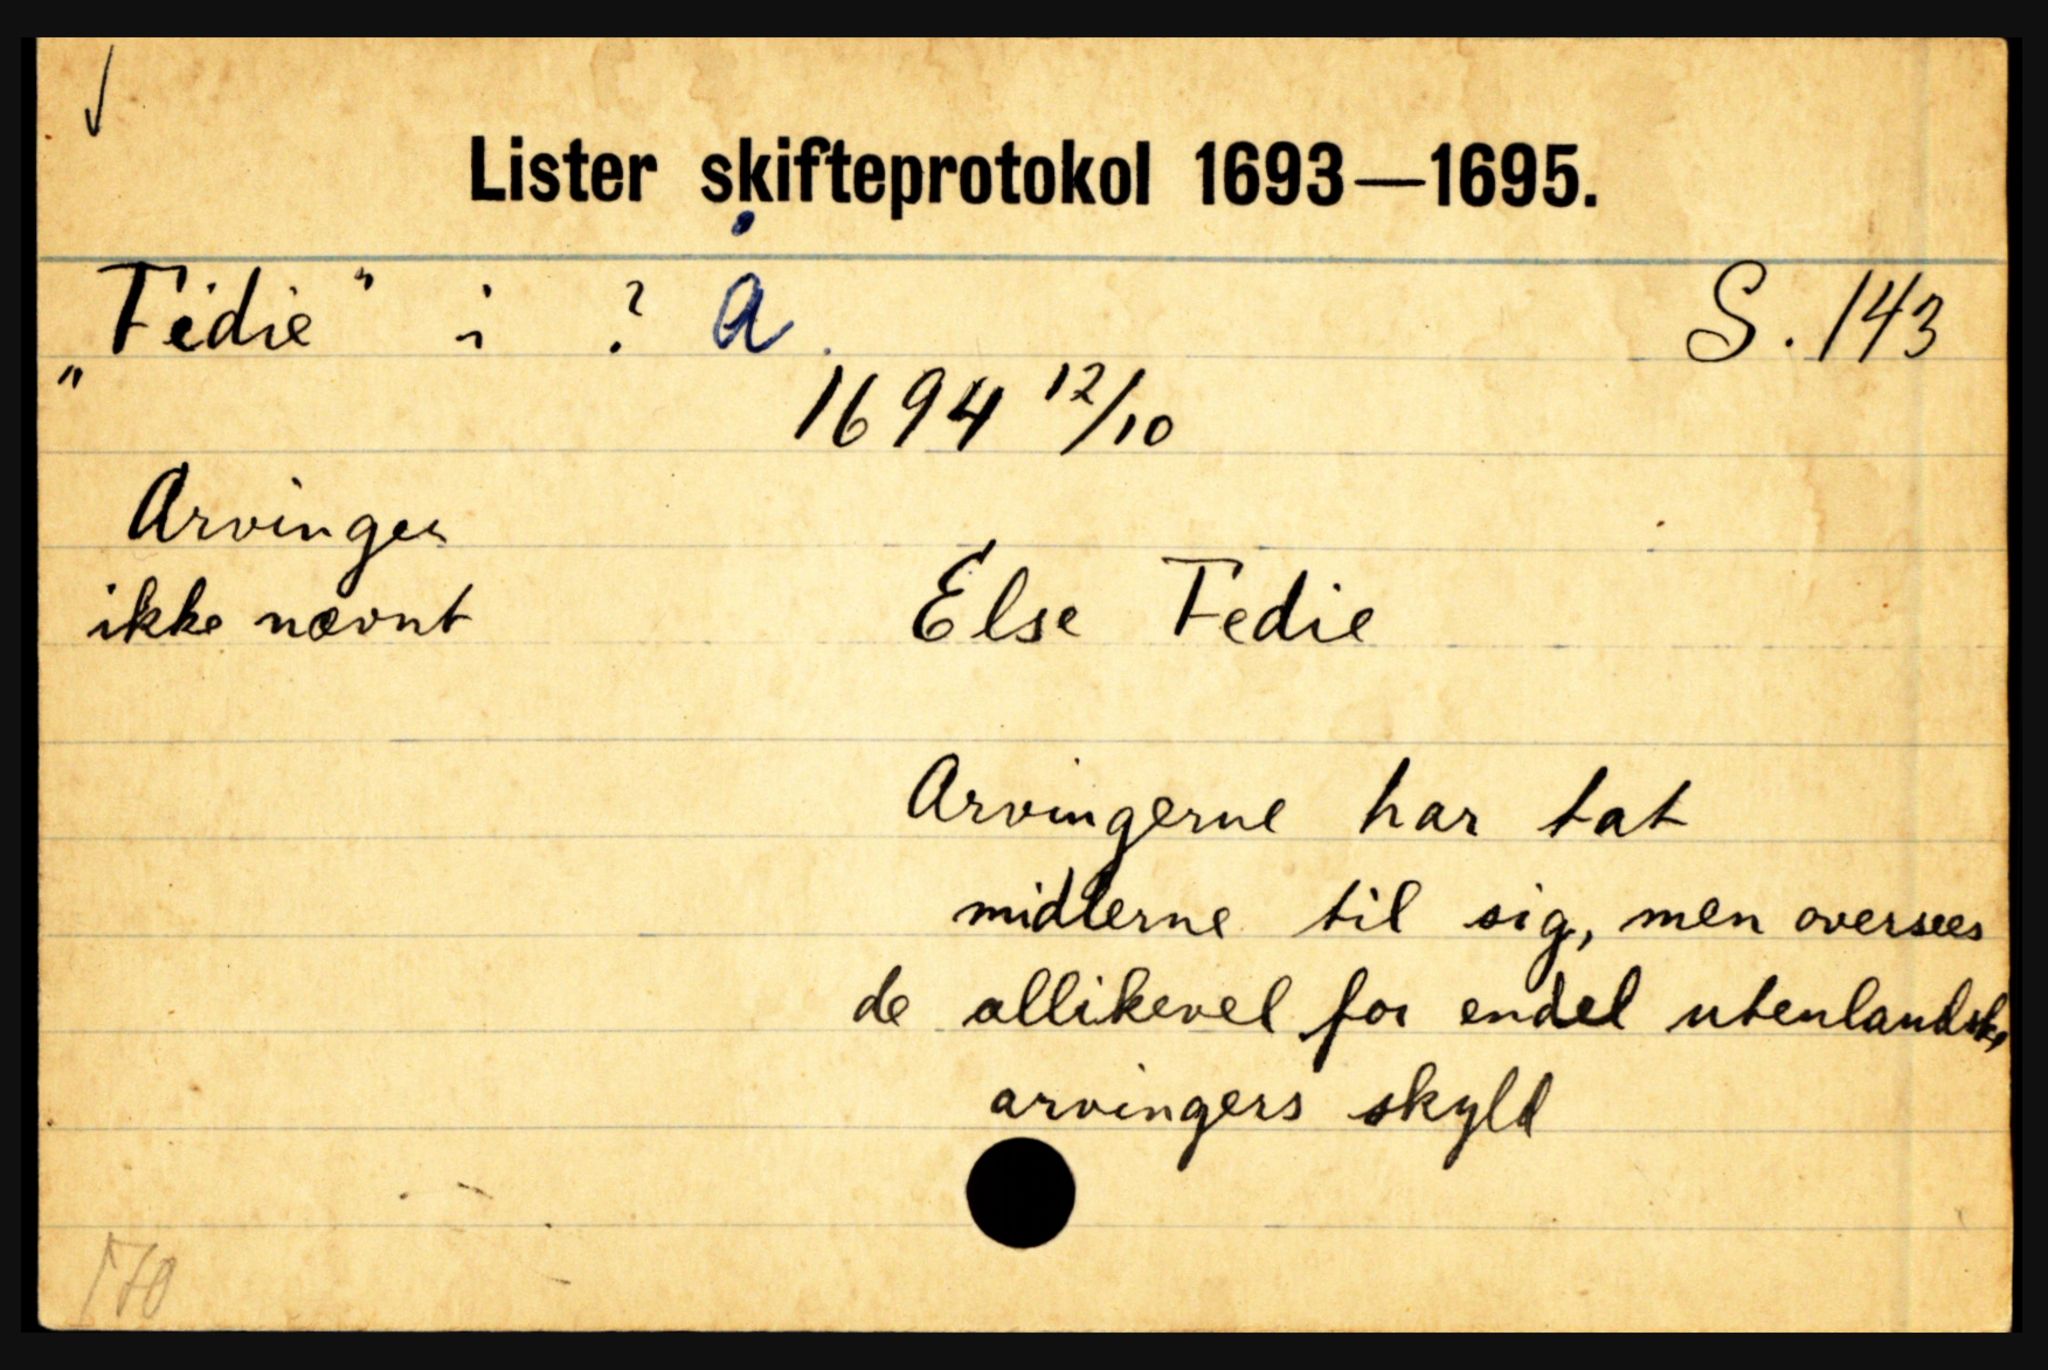 Lister skifteprotokol 1693—1695.
„Fedie" i ? Å S. 143
1694 12/10
Arvinger
ikke nævnt
Else Fedie
Arvingerne har tat
midlerne til sig, men oversees
de allikevel for endel utenlandske
arvingers skyld